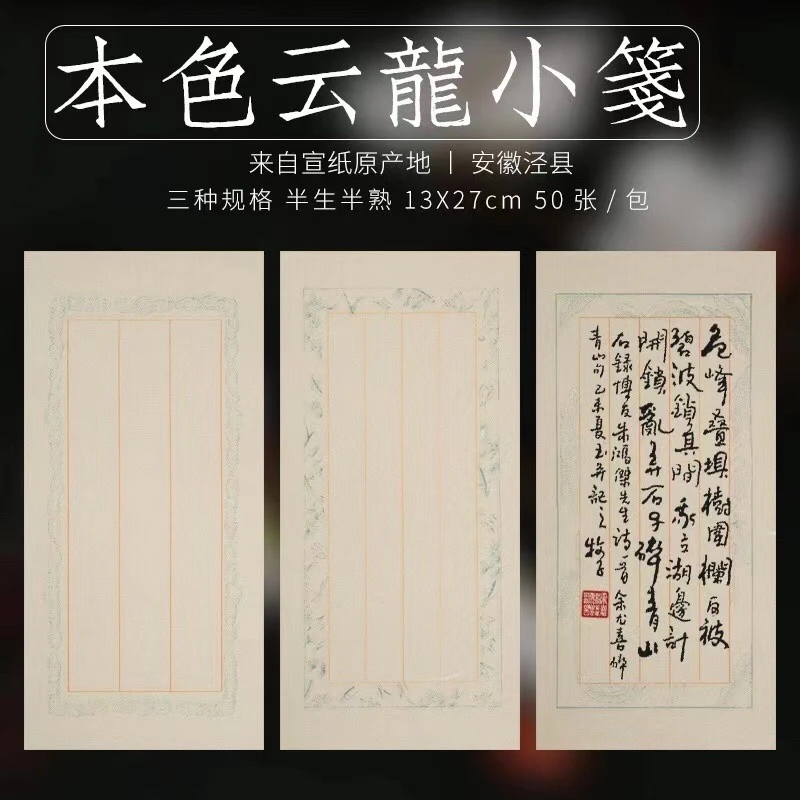 本色云龍小箋
来自宣纸原产地 丨 安徽泾县
三种规格 半生半熟 13X27cm 50 张 / 包
危峰叠垻樹圍欄百被
碧波鎖其間 我立湖邊計
開鎖亂弄石子碎青山
右録博友朱鴻傑先生詩一首 余尤喜碎
青山句 乙未夏玉并記之